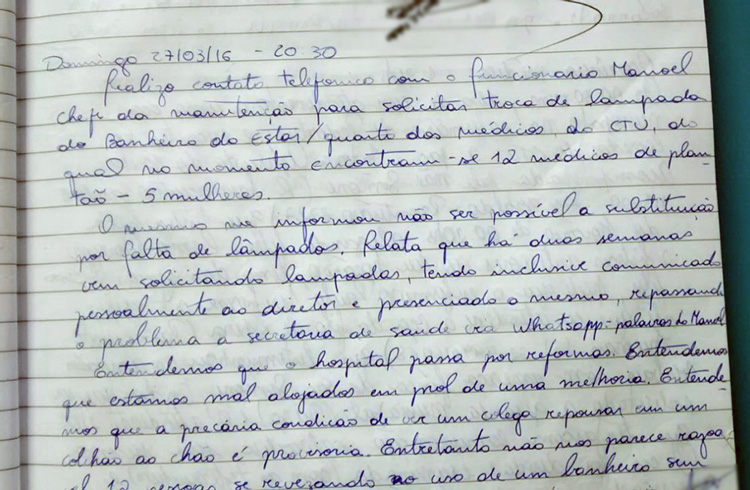 Domingo 27/03/16 - 20:30
Realizo contato telefonico com o funcionario Manoel
chefe da manutenção para solicitar troca de lampada
do Banheiro do Estar/quarto dos médicos, do CTU, do
qual no momento encontram-se 12 médicos de plan-
taõ - 5 mulheres.
O mesmo me informou não ser possível a substituição
por falta de lâmpados. Relata que há duas semanas
vem solicitando lampadas, tendo inclusive comunicado
pessoalmente ao diretor e presenciado o mesmo, repassando
o problema a secretaria de saúde via Whatsapp - palavras do Manoel
Entendemos que o hospital passa por reformas. Entendemos
que estamos mal alojados em prol de uma melhoria. Entende-
mos que a precária condição de ver um colega repousar em um
colchão ao chão é provisoria. Entretanto não nos parece razoa
12 pessoas se revezando no uso de um banheiro sem